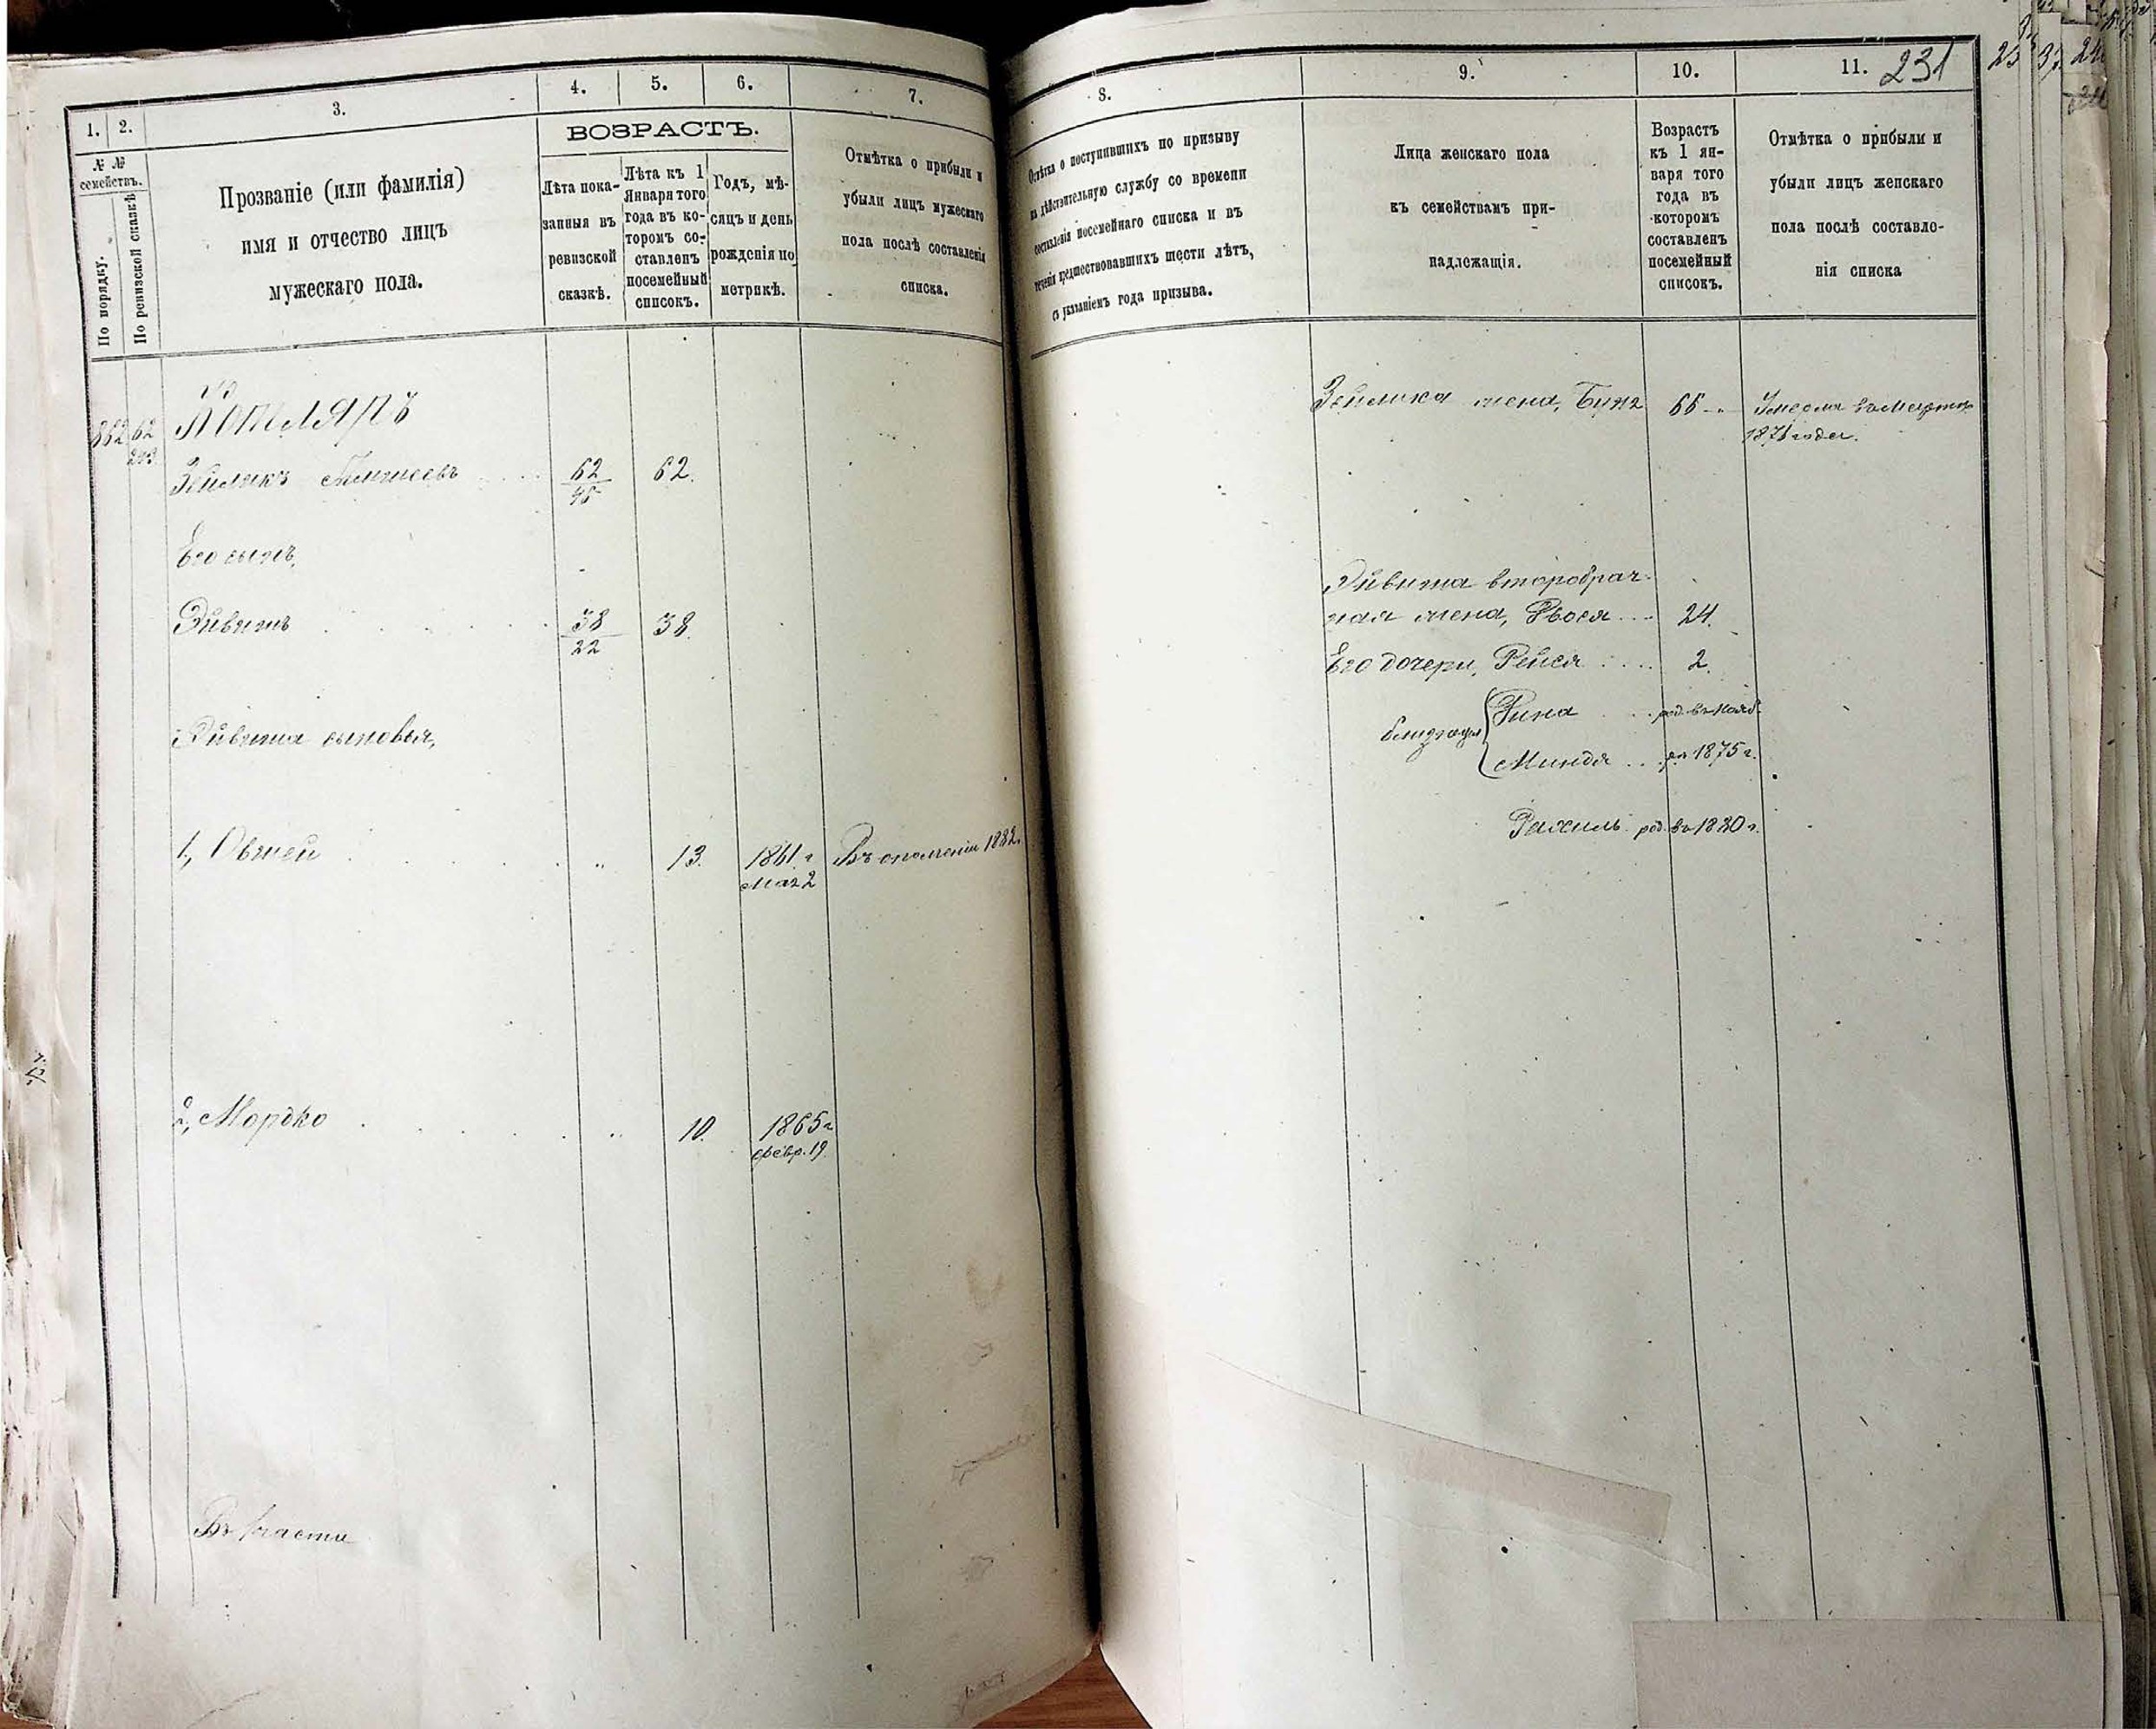 1.
2.
3.
4.
5.
6.
7.
№ №
семействъ.
По порядку.
По ревизской сказкѣ
Прозваніе (или фамилія)
имя и отчество лицъ
мужескаго пола.
ВОЗРАСТЪ.
Лѣта пока-
занныя въ
ревизской
сказкѣ.
Лѣта къ 1
Января того
года въ ко-
торомъ со-
ставленъ
посемейный
списокъ.
Годъ, мѣ-
сяцъ и день
рожденія по
метрикѣ.
Отмѣтка о прибыли и
убыли лицъ мужескаго
пола послѣ составленія
списка.
862 62
Котляръ
Зейликъ 62 62.
45
Его сынъ,
Эйвишъ 38 38.
22
Эйвиша сыновья,
1, Овшей „ 13. 1861 г Въ ополченіи 1882.
мая 2
2, Мордко „ 10. 1865 г
февр. 19.
Въ части
8.
9.
10.
11. 231
Отмѣтка о поступившихъ по призыву
на дѣйствительную службу со времени
составленія посемейнаго списка и въ
теченіи предшествовавшихъ шести лѣтъ,
съ указаніемъ года призыва.
Лица женскаго пола
къ семействамъ при-
надлежащія.
Возрастъ
къ 1 ян-
варя того
года въ
которомъ
составленъ
посемейный
списокъ.
Отмѣтка о прибыли и
убыли лицъ женскаго
пола послѣ составле-
нія списка
Зейлика жена, 66 Умерла въ мартѣ
1871 года.
Эйвиша второбрач-
ная жена, Двося 24.
Его дочери, Рейся 2.
близнецы Фина род. въ нояб.
Миндя 1875 г.
Рахиль род. въ 1880 г.